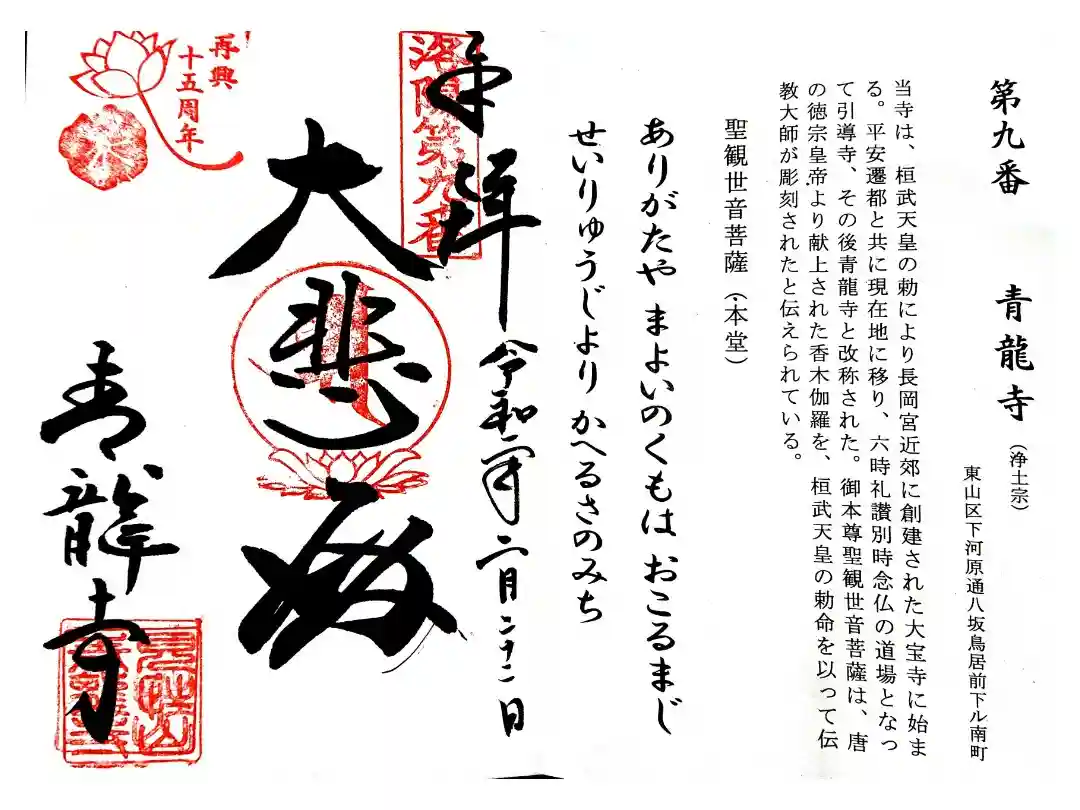 第九番 青龍寺（浄土宗）
東山区下河原通八坂鳥居前下ル南町
当寺は、桓武天皇の勅により長岡宮近郊に創建された大宝寺に始ま
る。平安遷都と共に現在地に移り、六時礼讃別時念仏の道場となっ
て引導寺、その後青龍寺と改称された。御本尊聖観世音菩薩は、唐
の徳宗皇帝より献上された香木伽羅を、桓武天皇の勅命を以って伝
教大師が彫刻されたと伝えられている。
聖観世音菩薩（本堂）
ありがたや まよいのくもは おこるまじ
せいりゅうじより かへるさのみち
奉拝
洛陽第九番
令和二年二月二十二日
大悲殿
再興
十五周年
青龍寺